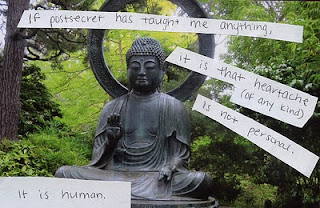 If postsecret has taught me anything,
it is that heartache
(of any kind)
Is not personal.
It is human.